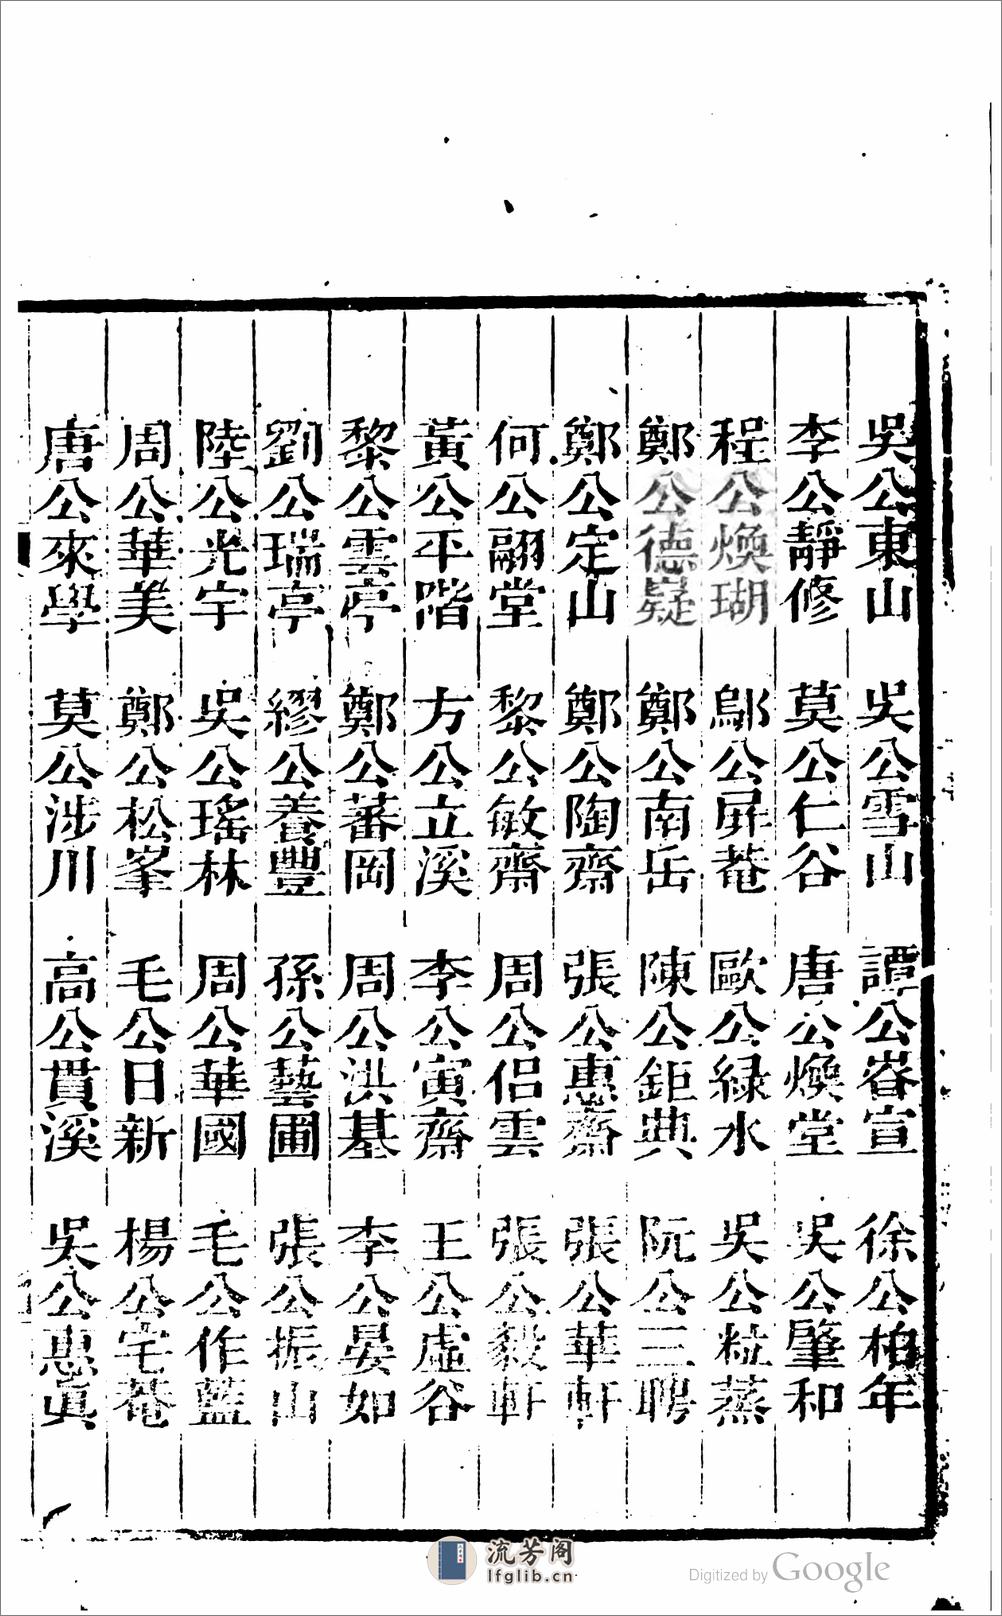 吳公東山 吳公雪山 譚公睿宣 徐公柏年
李公靜修 莫公仁谷 唐公煥堂 吳公肇和
程公煥瑚 鄔公屏菴 歐公綠水 吳公粒蒸
鄭公德嶷 鄭公南岳 陳公鉅典 阮公三聘
鄭公定山 鄭公陶齋 張公惠齋 張公華軒
何公翮堂 黎公敏齋 周公侶雲 張公毅軒
黃公平階 方公立溪 李公寅齋 王公虛谷
黎公雲亭 鄭公蕃岡 周公洪基 李公晏如
劉公瑞亭 繆公養豐 孫公藝圃 張公振山
陸公光宇 吳公瑤林 周公華國 毛公作藍
周公華美 鄭公松峯 毛公日新 楊公宅菴
唐公來學 莫公涉川 高公貫溪 吳公惠眞
流芳阁
lfglib.cn
Digitized by Google